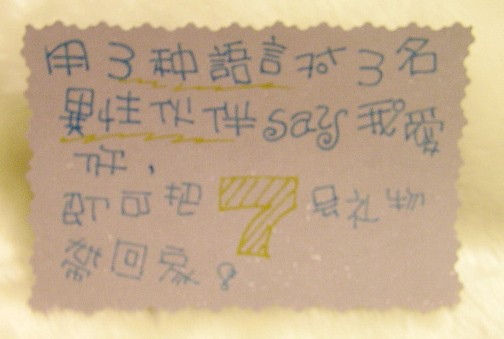 用3种語言对3名
異性伙伴say我愛
你,
即可把7号礼物
帶回家。